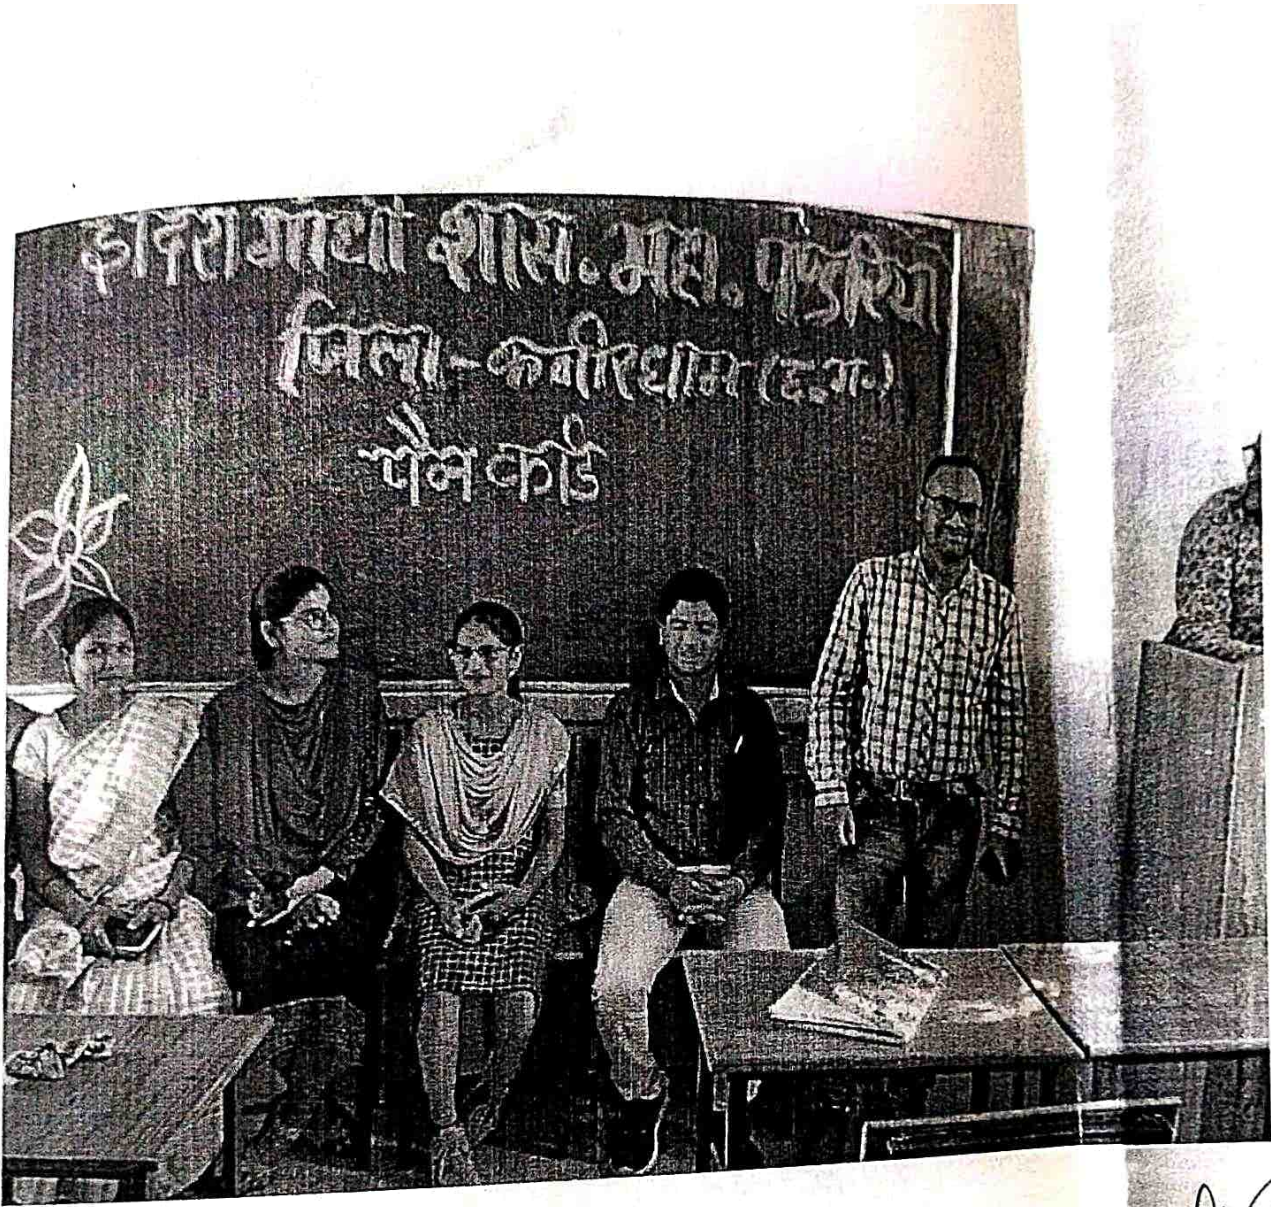 इंदिरा गांधी शास. महा. पण्डरिया
जिला-कबीरधाम (छ.ग.)
पैन कार्ड